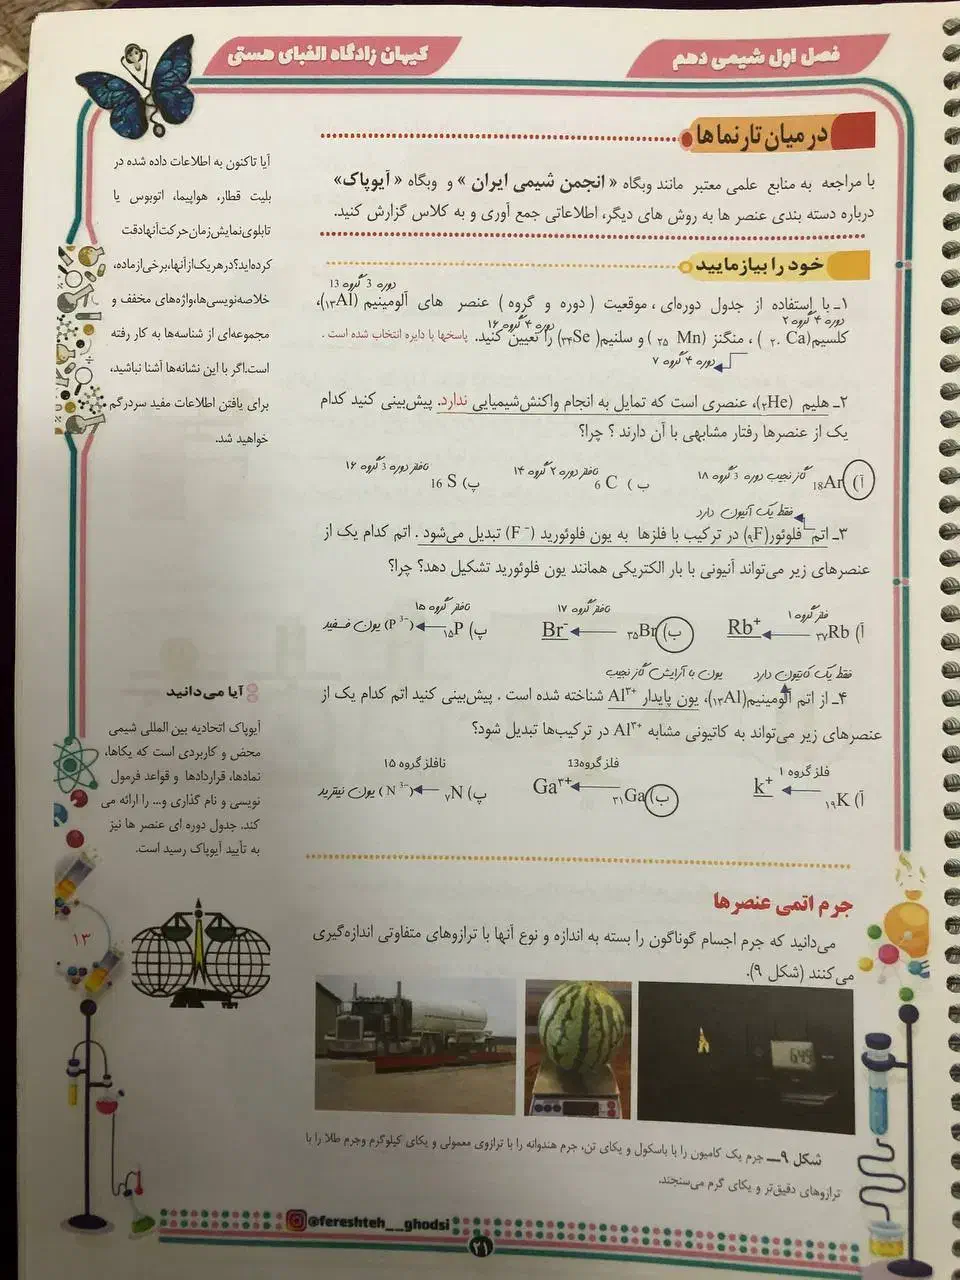 فصل اول شیمی دهم
کیهان زادگاه الفبای هستی
در میان تارنماها
با مراجعه به منابع علمی معتبر مانند وبگاه « انجمن شیمی ایران » و وبگاه « آیوپاک»
درباره دسته بندی عنصر ها به روش های دیگر، اطلاعاتی جمع آوری و به کلاس گزارش کنید.
خود را بیازمایید
دوره 3 گروه 13
۱ـ با استفاده از جدول دوره‌ای ، موقعیت ( دوره و گروه ) عنصر های آلومینیم (₁₃Al)،
دوره ۴ گروه ۲
دوره ۴ گروه ۱۶
کلسیم(₂₀Ca ) ، منگنز (₂₅Mn ) و سلنیم(₃₄Se) را تعیین کنید. پاسخها با دایره انتخاب شده است .
دوره ۴ گروه ۷
۲ـ هلیم (₂He)، عنصری است که تمایل به انجام واکنش‌شیمیایی ندارد. پیش‌بینی کنید کدام
یک از عنصرها رفتار مشابهی با آن دارند ؟ چرا؟
آ) ₁₈Ar گاز نجیب دوره 3 گروه ۱۸
ب ) ₆C نافلز دوره ۲ گروه ۱۴
پ) ₁₆S نافلز دوره 3 گروه ۱۶
فقط یک آنیون دارد
۳ـ اتم فلوئور(₉F) در ترکیب با فلزها به یون فلوئورید (F⁻) تبدیل می‌شود . اتم کدام یک از
عنصرهای زیر می‌تواند آنیونی با بار الکتریکی همانند یون فلوئورید تشکیل دهد؟ چرا؟
فلز گروه ۱
نافلز گروه ۱۷
نافلز گروه ۱۵
آ) ₃₇Rb ← Rb⁺
ب) ₃₅Br ← Br⁻
پ) ₁₅P ← (P³⁻) یون فسفید
فقط یک کاتیون دارد
یون با آرایش گاز نجیب
۴ـ از اتم آلومینیم(₁₃Al)، یون پایدار Al³⁺ شناخته شده است . پیش‌بینی کنید اتم کدام یک از
عنصرهای زیر می‌تواند به کاتیونی مشابه Al³⁺ در ترکیب‌ها تبدیل شود؟
فلز گروه ۱
فلز گروه13
نافلز گروه ۱۵
آ) ₁₉K ← k⁺
ب) ₃₁Ga ← Ga³⁺
پ) ₇N ← (N³⁻) یون نیترید
جرم اتمی عنصرها
می‌دانید که جرم اجسام گوناگون را بسته به اندازه و نوع آنها با ترازوهای متفاوتی اندازه‌گیری
می‌کنند (شکل ۹).
649
شکل ۹ــ جرم یک کامیون را با باسکول و یکای تن، جرم هندوانه را با ترازوی معمولی و یکای کیلوگرم وجرم طلا را با
ترازوهای دقیق‌تر و یکای گرم می‌سنجند.
آیا تاکنون به اطلاعات داده شده در
بلیت قطار، هواپیما، اتوبوس یا
تابلوی‌نمایش‌زمان‌حرکت‌آنهادقت
کرده‌اید؟درهریک‌ازآنها،برخی‌ازماده،
خلاصه‌نویسی‌ها،واژه‌های مخفف و
مجموعه‌ای از شناسه‌ها به کار رفته
است.اگر با این نشانه‌ها آشنا نباشید،
برای یافتن اطلاعات مفید سردرگم
خواهید شد.
آیا می‌دانید
آیوپاک اتحادیه بین المللی شیمی
محض و کاربردی است که یکاها،
نمادها، قراردادها و قواعد فرمول
نویسی و نام گذاری و... را ارائه می
کند. جدول دوره ای عنصر ها نیز
به تأیید آیوپاک رسید است.
۱۳
@fereshteh__ghodsi
۲۱